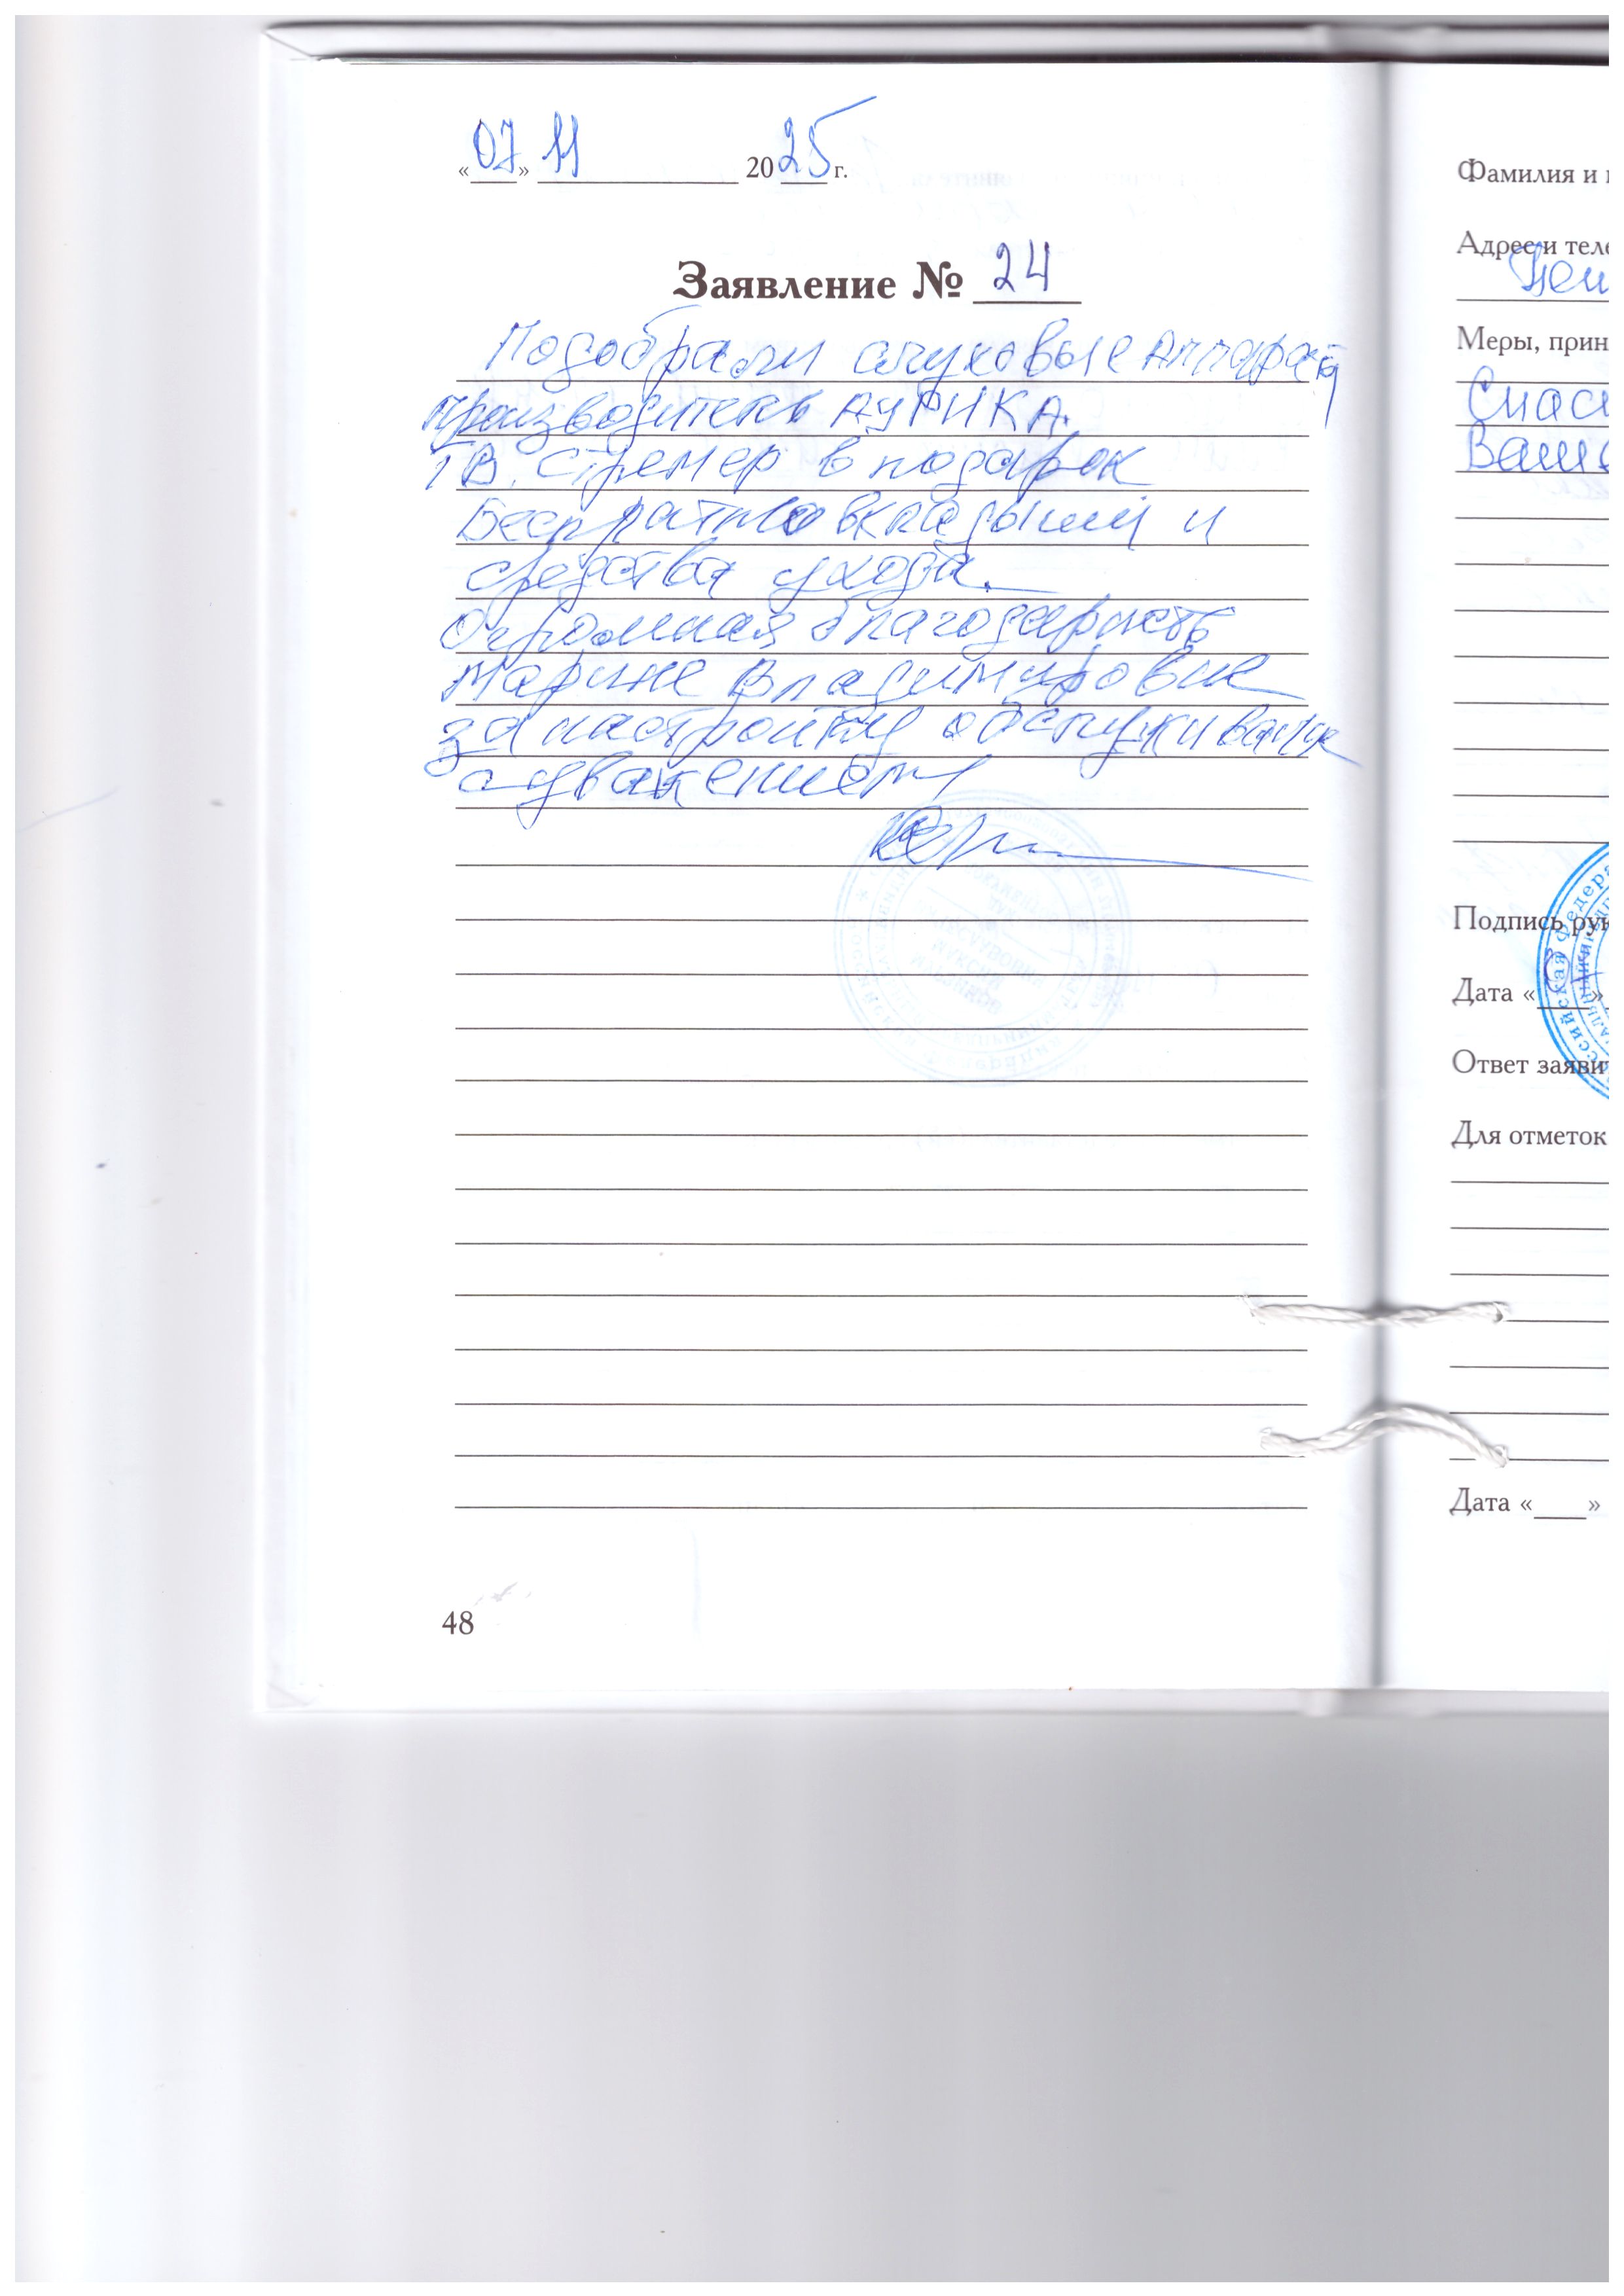 «07» 11 2025 г.
Заявление № 24
Подобрали слуховые аппараты
производитель АУРИКА.
ТВ. Стремер в подарок
Бесплатно вкладыши и
средства ухода.
Огромная благодарность
Марине Владимировне
за настройку обслуживание
с уважением
48
Фамилия и
Адрес и теле
Меры, прин
Спаси
Ваше
Подпись рук
Дата « »
Ответ заяви
Для отметок
Дата « »